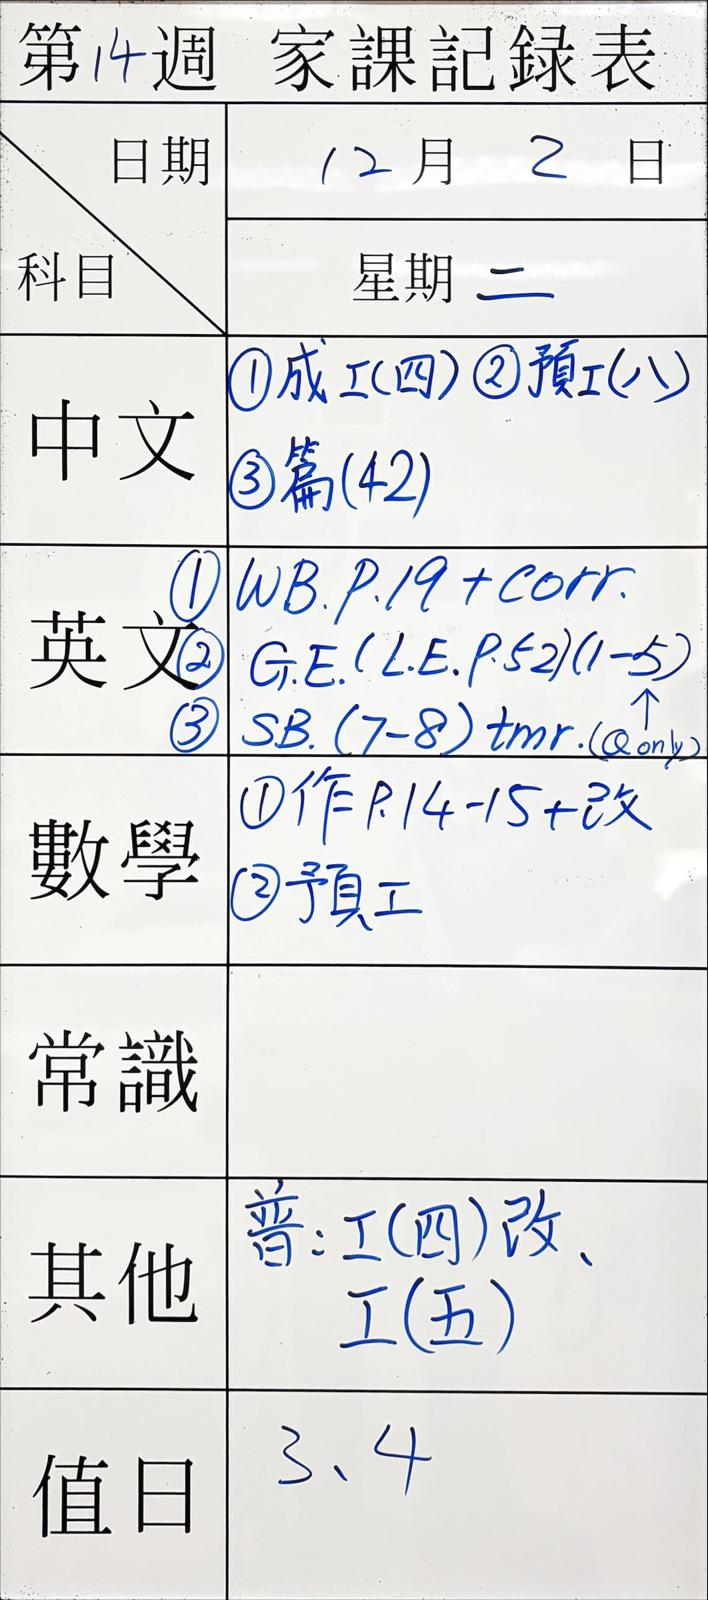 第14週 家課記録表
日期 12月 2 日
科目 星期 二
中文 ①成工(四) ②預工(八)
③篇(42)
英文 ① WB. P.19 + corr.
② G.E. (L.E. P.52)(1-5)
③ SB. (7-8) tmr. (Q only) ↑
數學 ①作 P.14-15+改
②預工
常識
其他 普:工(四)改、
工(五)
值日 3、4